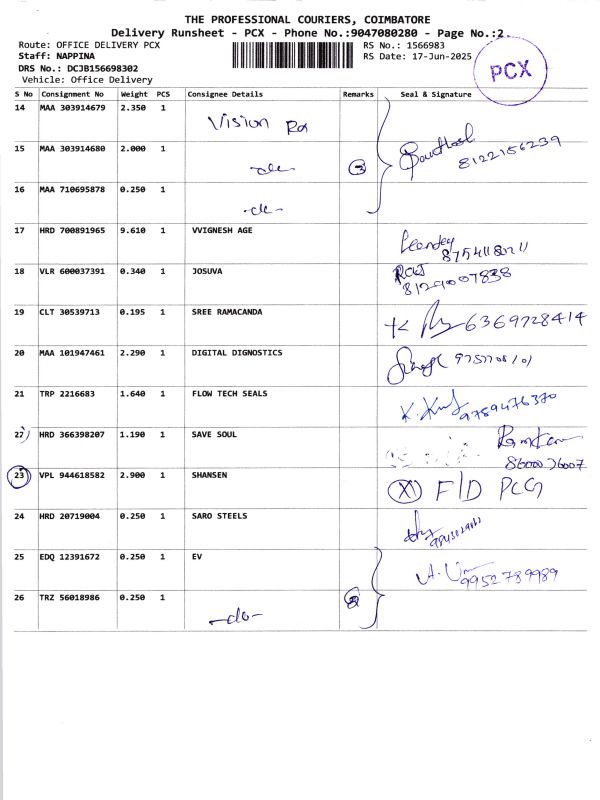 THE PROFESSIONAL COURIERS, COIMBATORE
Delivery Runsheet - PCX - Phone No.:9047080280 - Page No.:2
Route: OFFICE DELIVERY PCX
RS No.: 1566983
Staff: NAPPINA
RS Date: 17-Jun-2025
DRS No.: DCJB156698302
Vehicle: Office Delivery
PCX
S No Consignment No Weight PCS Consignee Details Remarks Seal & Signature
14 MAA 303914679 2.350 1 Vision
15 MAA 303914680 2.000 1 3 8122156239
16 MAA 710695878 0.250 1
17 HRD 700891965 9.610 1 VVIGNESH AGE
18 VLR 600037391 0.340 1 JOSUVA
19 CLT 30539713 0.195 1 SREE RAMACANDA 6369728414
20 MAA 101947461 2.290 1 DIGITAL DIGNOSTICS
21 TRP 2216683 1.640 1 FLOW TECH SEALS 9789476370
22 HRD 366398207 1.190 1 SAVE SOUL
23 VPL 944618582 2.900 1 SHANSEN F/D PCG
24 HRD 20719004 0.250 1 SARO STEELS
25 EDQ 12391672 0.250 1 EV 9952789989
26 TRZ 56018986 0.250 1 -do- 2